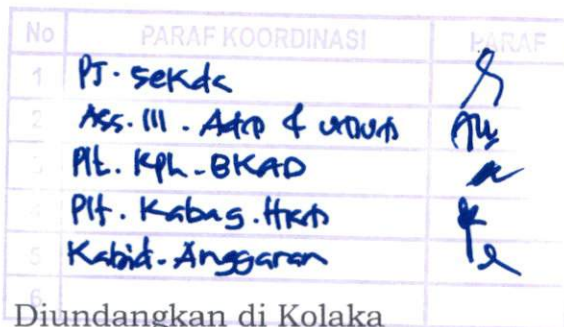 No PARAF KOORDINASI PARAF
1 PJ. Sekda
2 Ass. III. Adm & umum
3 Plt. Kph-BKAD
4 Plt. Kabag. Hkm
5 Kabid. Anggaran
6
Diundangkan di Kolaka